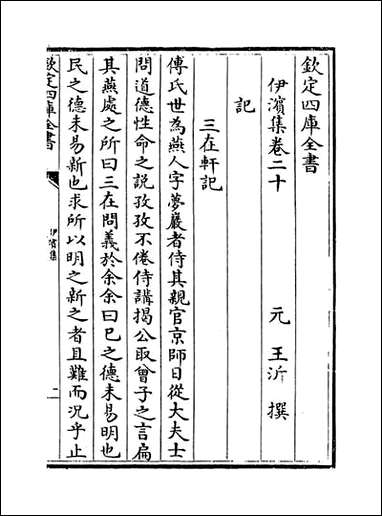 欽定四庫全書
伊濱集卷二十
元 王沂 撰
記
三在軒記
傅氏世為燕人字夢巖者侍其親官京師日從大夫士
問道德性命之説孜孜不倦侍講揭公取曾子之言扁
其燕處之所曰三在問義於余余曰已之德未易明也
民之德未易新也求所以明之新之者且難而況乎止
欽定四庫全書
伊濱集
一